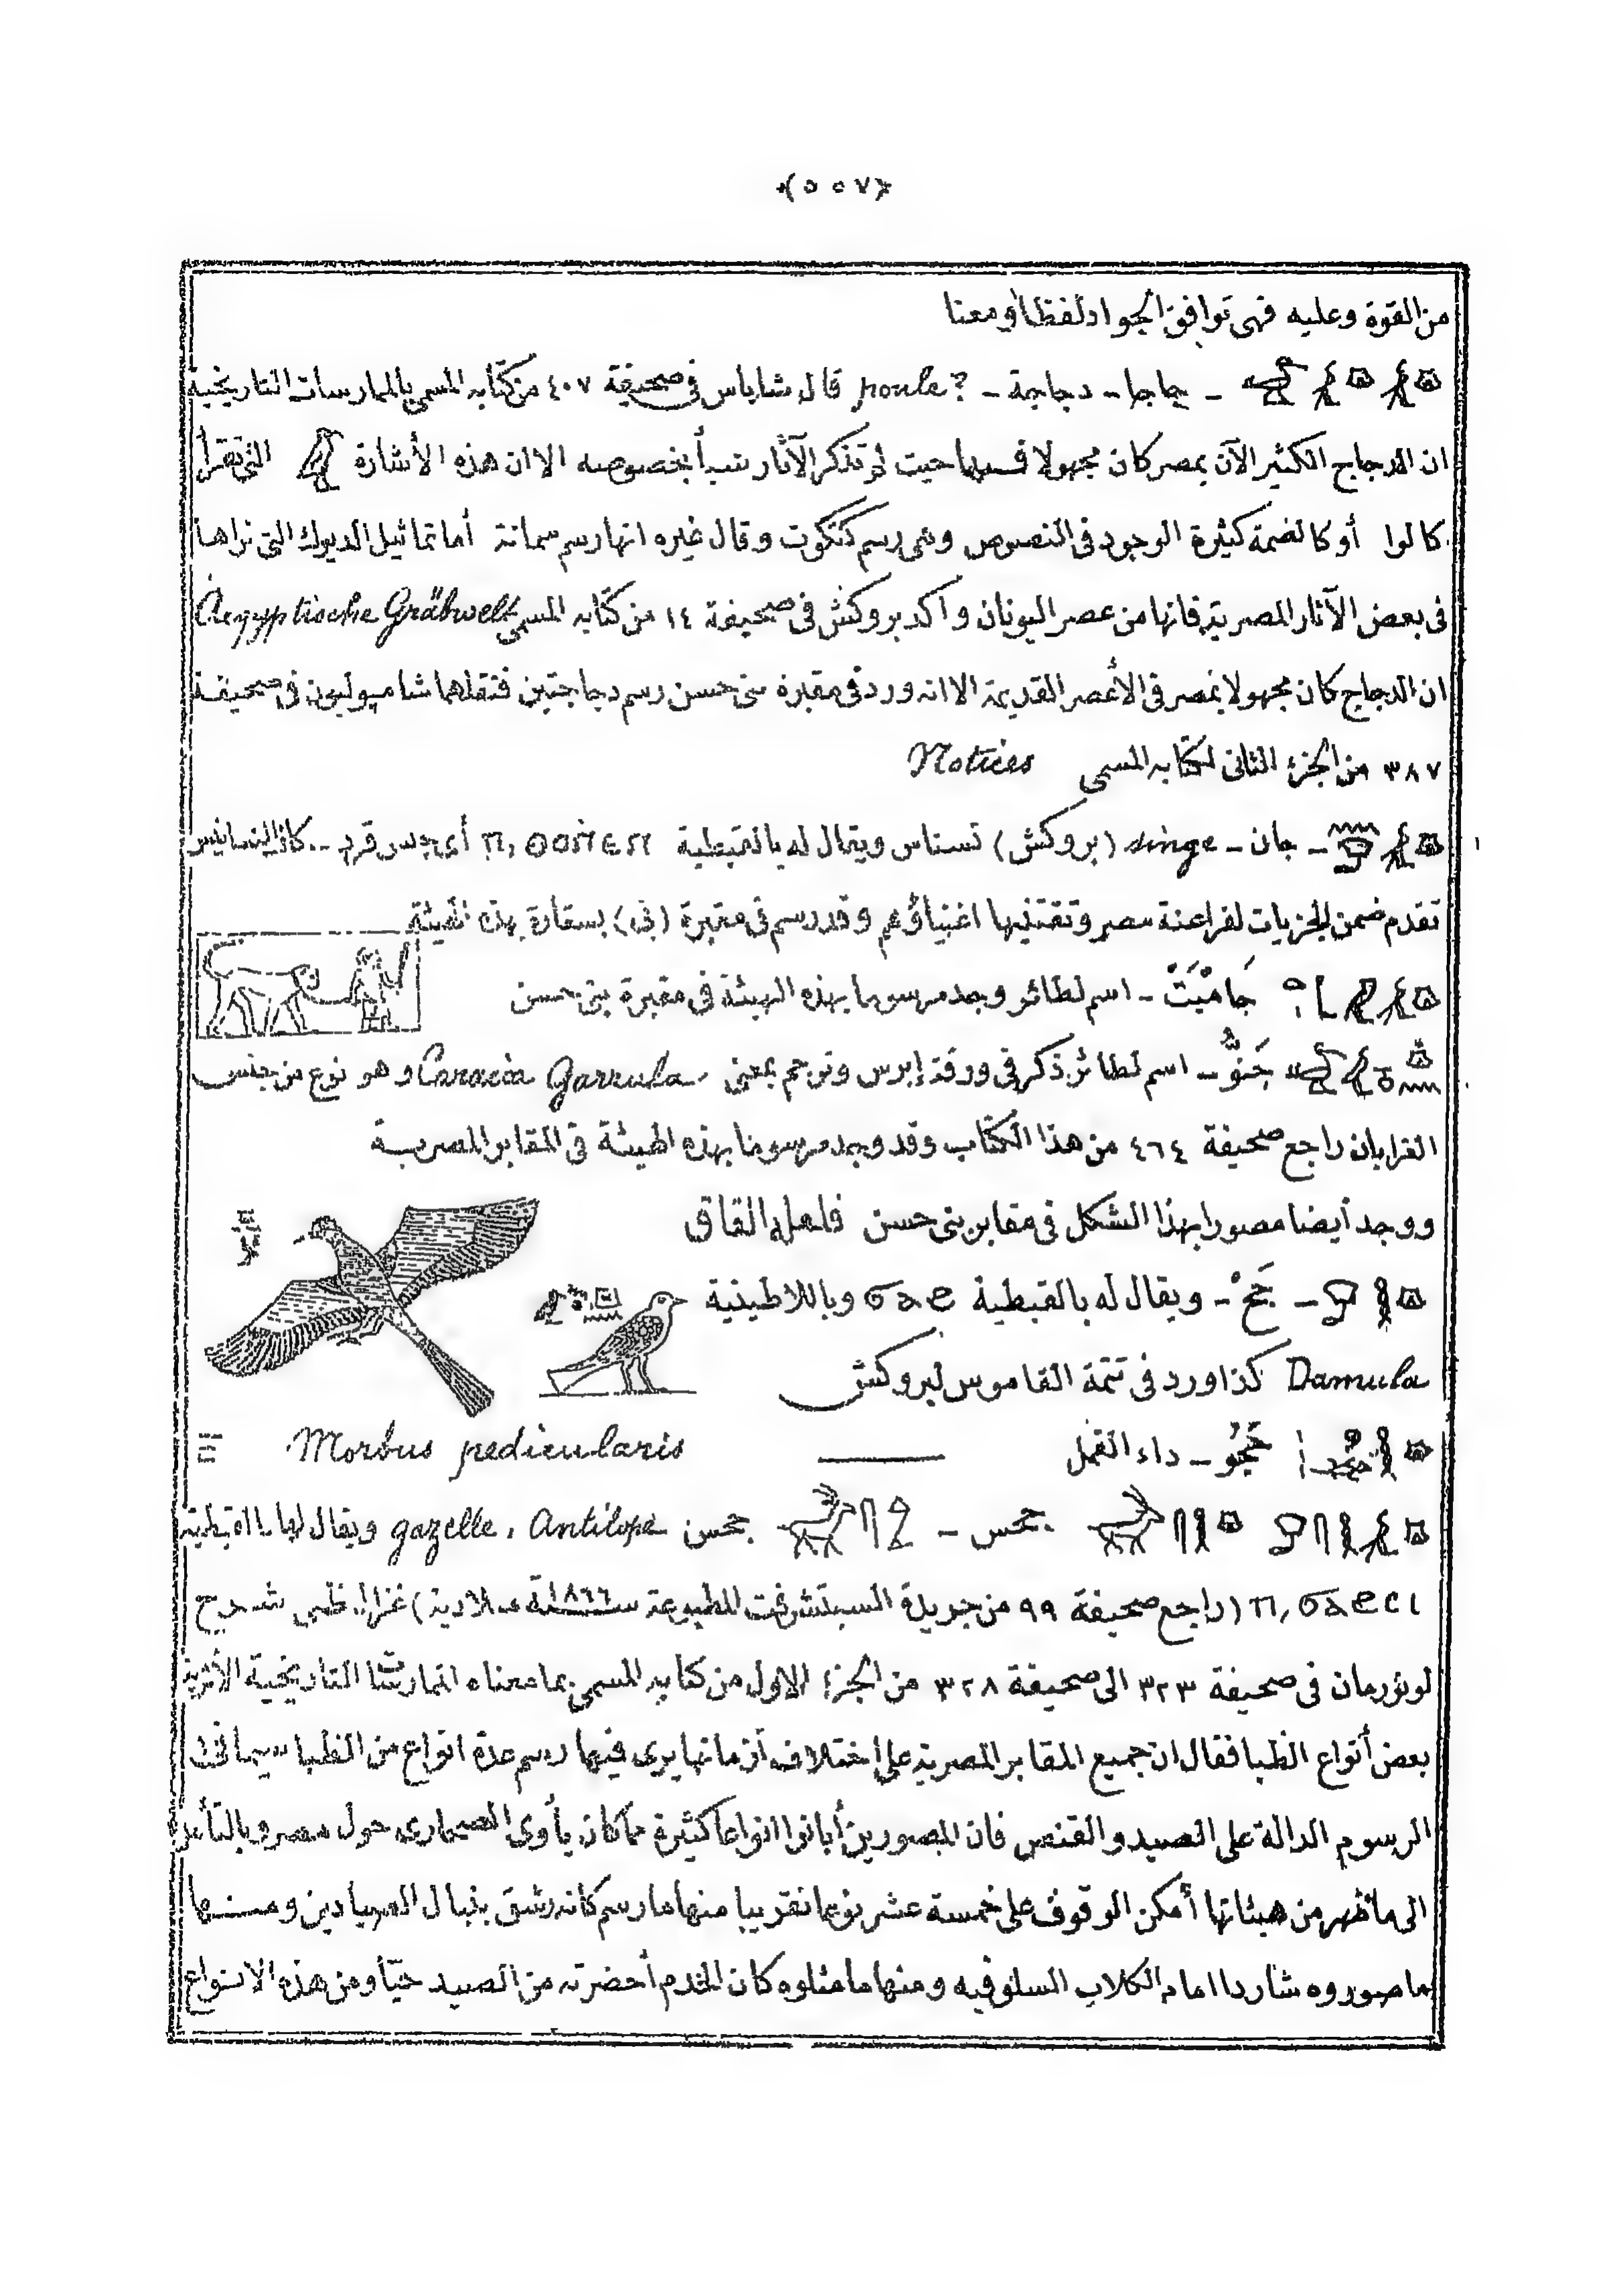 ﴿٥٥٧﴾
من القوة وعليه فهى توافق الجواد لفظا ومعنا
ـ جاجا ـ دجاجة ـ poule? قال شاباس فى صحيفة ٤٠٧ من كتابه المسمى بالممارسات التاريخية
ان الدجاج الكثير الآن بمصر كان مجهولا فيها حيث لم تذكر الآثار شيأ بخصوصه الا ان هذه الأشارة التى تقرأ
كالوا أو كالضمة كثيرة الوجود فى النصوص وهى رسم كتكوت وقال غيره انها رسم سمانة أما تماثيل الديوك التى نراها
فى بعض الآثار المصرية فانها من عصر اليونان واكد بروكش فى صحيفة ١٤ من كتابه المسمى Aegyptische Gräbwelt
ان الدجاج كان مجهولا بمصر فى الأعصر القديمة الا انه ورد فى مقبرة بنى حسن رسم دجاجتين فنقلهما شامبوليون فى صحيفة
٣٨٧ من الجزء الثانى لكتابه المسمى Notices
ـ جان ـ singe (بروكش) نسناس ويقال له بالقبطية أى جنس قرد ـ كان النسانيس
تقدم ضمن الجزيات لفراعنة مصر وتقتنيها اغنياؤهم وقد رسم فى مقبرة (تى) بسقارة بهذه الهيئة
ـ اسم لطائر وجد مرسوما بهذه الهيئة فى مقبرة بنى حسن
جَنُوُّ ـ اسم لطائر ذكر فى ورقة إبرس وترجم بمعنى Coracia Garrula وهو نوع من جنس
الغرابان راجع صحيفة ٤٦٤ من هذا الكتاب وقد وجد مرسوما بهذه الهيئة فى المقابر المصرية
ووجد أيضا مصورا بهذا الشكل فى مقابر بنى حسن فلعله القاق
ـ جَحْ ـ ويقال له بالقبطية ϭⲁϩⲉ وباللاطينية
Damula كذا ورد فى تتمة القاموس لبروكش
ـ داء القمل Morbus pedicularis
جحس ـ جحس gazelle, Antilope ويقال لها بالقبطية
(راجع صحيفة ٩٩ من جريدة السيتشرفت المطبوعة سنة ١٨٦٦ ميلادية) غزال. ظبى شرح
لونورمان فى صحيفة ٣٢٣ الى صحيفة ٣٢٨ من الجزء الاول من كتابه المسمى بما معناه الممارسات التاريخية الأثرية
بعض أنواع الظبا فقال ان جميع المقابر المصرية على اختلاف أزمانها يرى فيها رسم عدة انواع من الظبا سيما فى
الرسوم الدالة على الصيد والقنص فان المصورين أبانوا انواعا كثيرة مما كان يأوى الصحارى حول مصر وبالتأمل
الى ما ظهر من هيئاتها أمكن الوقوف على خمسة عشر نوعا تقريبا منها ما رسم كانه رشق بنبال الصيادين ومنها
ما صوروه شاردا امام الكلاب السلوقيه ومنها ما مثلوه كان الخدم أحضرته من الصيد حيّا ومن هذه الانواع